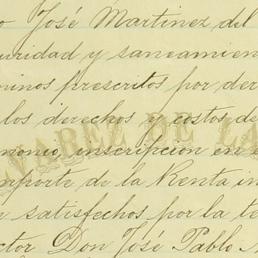 o José Martinez del
uridad y saneamien
minos prescritos por der
los derechos y costos de
LVAREZ DE LA
monio, inscripcion en e
mporte de la Renta in
e satisfechos por la te
ctor Don José Pablo M